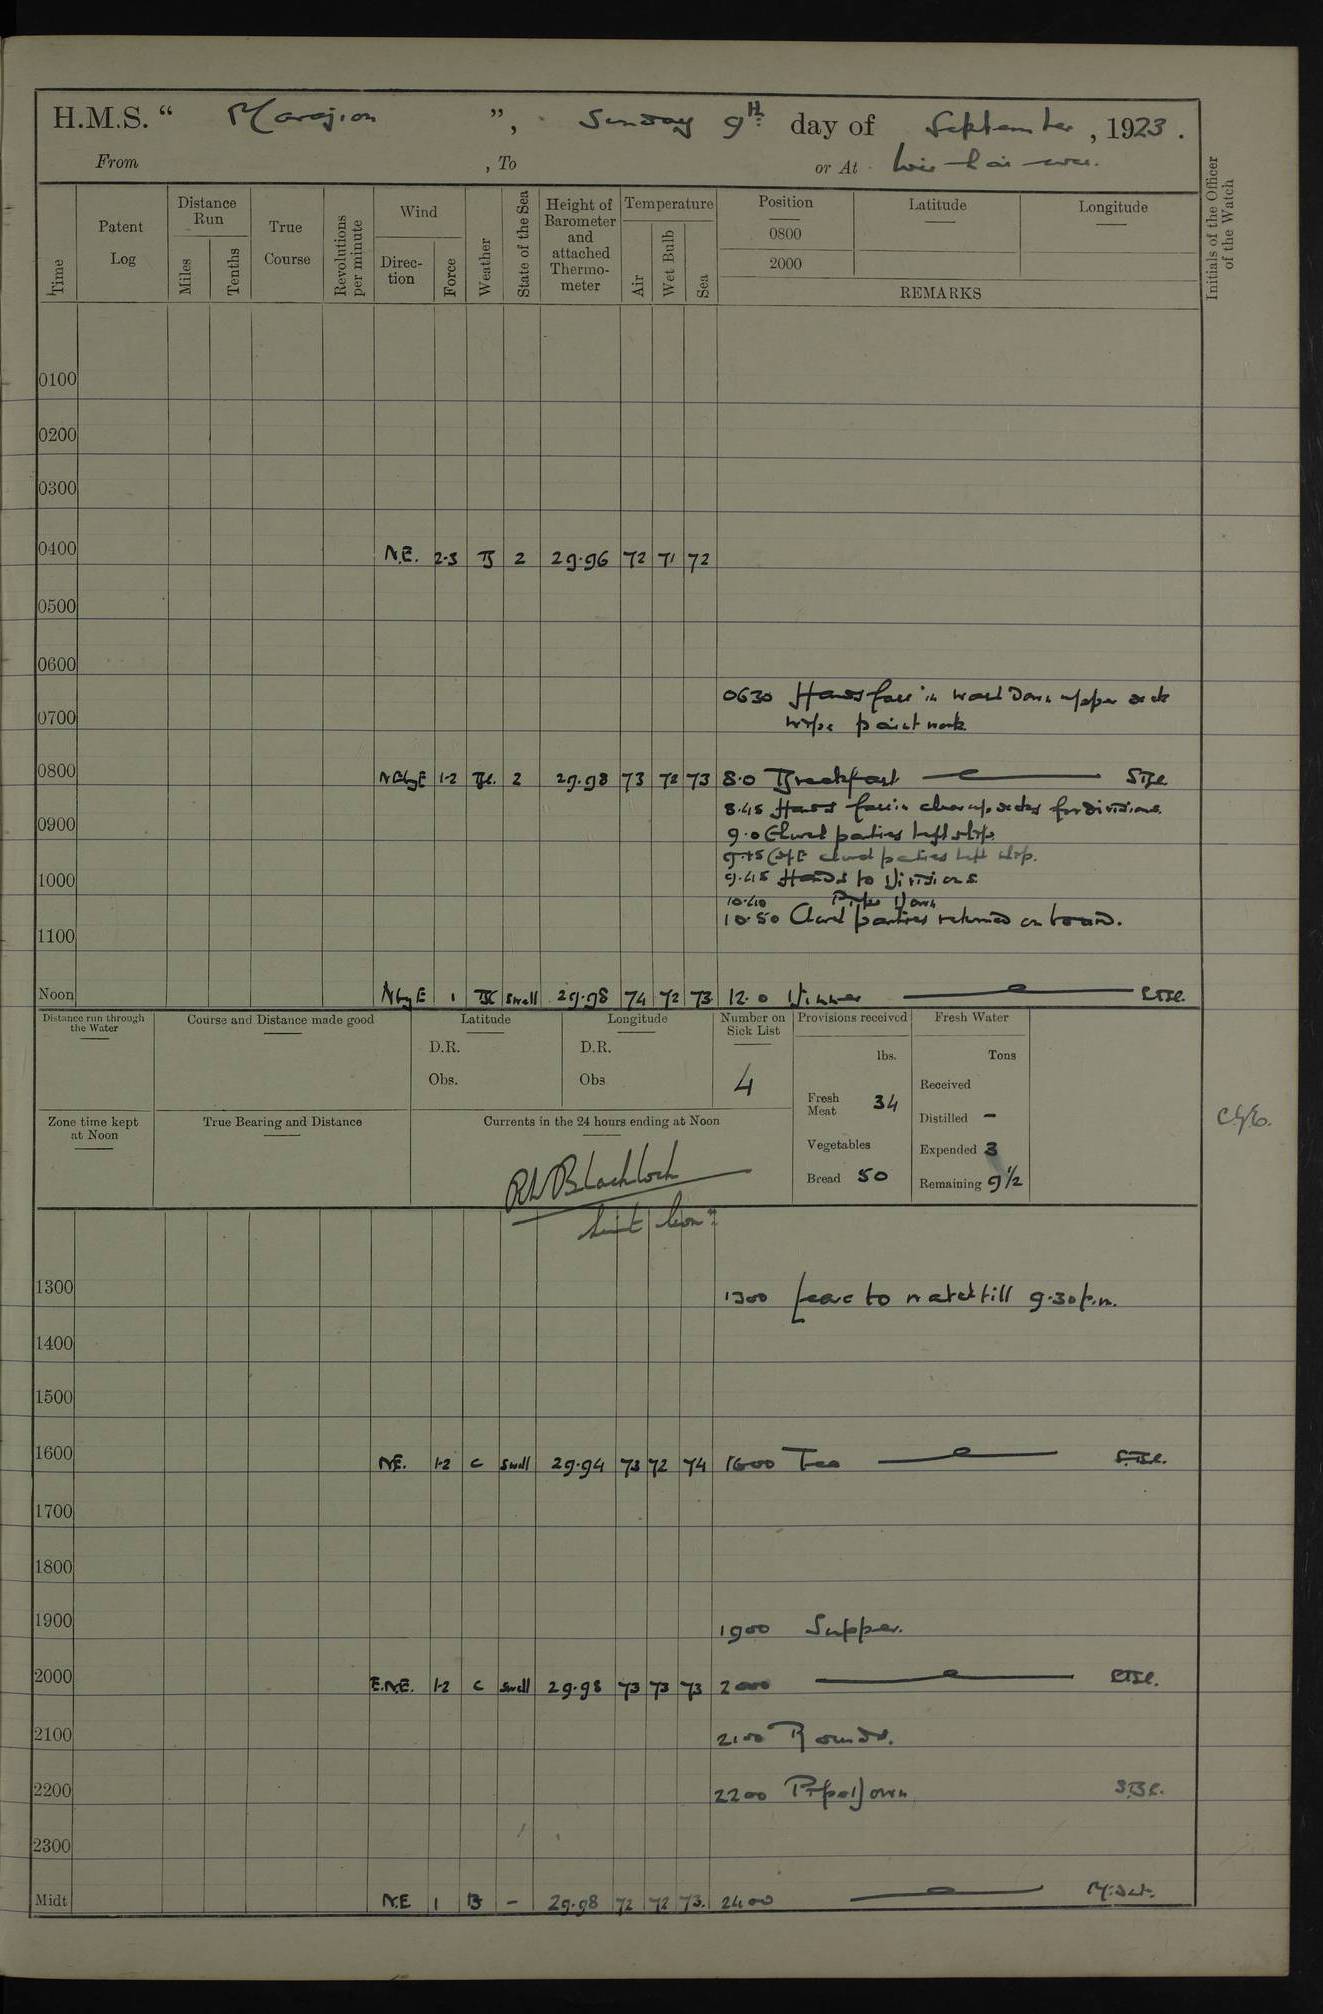 H.M.S. " Marazion ", Sunday 9th day of September, 1923.
From , To or At Wei-hai-wei.
Time Patent Log Distance Run Miles Tenths True Course Revolutions per minute Wind Direc-tion Force Weather State of the Sea Height of Barometer and attached Thermo-meter Temperature Air Wet Bulb Sea Position 0800 2000 Latitude Longitude Initials of the Officer of the Watch
REMARKS
0100
0200
0300
0400 N.E. 2-3 B 2 29.96 72 71 72
0500
0600
0630 Hands fall in wash down upper deck
0700 wipe paintwork
0800 NEbyE 1-2 Bc. 2 29.98 73 72 73 8.0 Breakfast
8.45 Hands fall in clear up decks for divisions.
0900 9.0 Church parties left ship
9.15 C of E church parties left ship.
1000 9.45 Hands to Divisions
10.40 Pipe Down
10.50 Church parties returned on board.
1100
Noon NbyE 1 BC Swell 29.98 74 72 73 12.0 Dinner
Distance run through the Water
Course and Distance made good
Latitude
D.R.
Obs.
Longitude
D.R.
Obs
Number on Sick List
4
Provisions received
lbs.
Fresh Meat 34
Vegetables
Bread 50
Fresh Water
Tons
Received
Distilled -
Expended 3
Remaining 9½
Zone time kept at Noon
True Bearing and Distance
Currents in the 24 hours ending at Noon
Lieut Com
1300 1300 Leave to watch till 9.30 p.m.
1400
1500
1600 NE. 1-2 C Swell 29.94 73 72 74 1600 Tea
1700
1800
1900 1900 Supper.
2000 E.N.E. 1-2 C Swell 29.98 73 73 73 2000
2100 2100 Rounds.
2200 2200 Pipe Down
2300
Midt N.E 1 B - 29.98 72 72 73. 2400